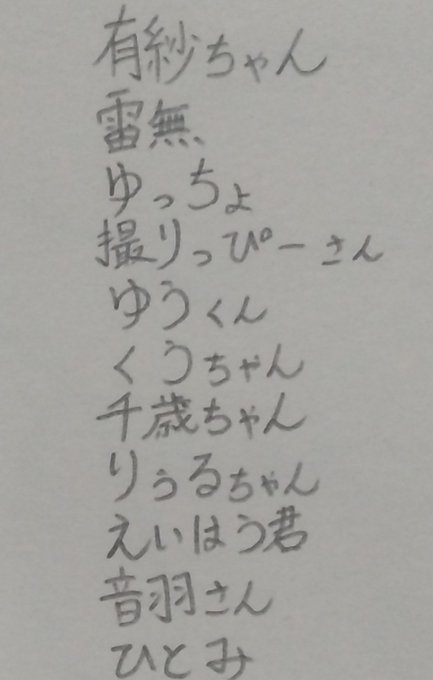 有紗ちゃん
雷無
ゆっちょ
撮りっぴーさん
ゆうくん
くうちゃん
千歳ちゃん
りぅるちゃん
えいはう君
音羽さん
ひとみ